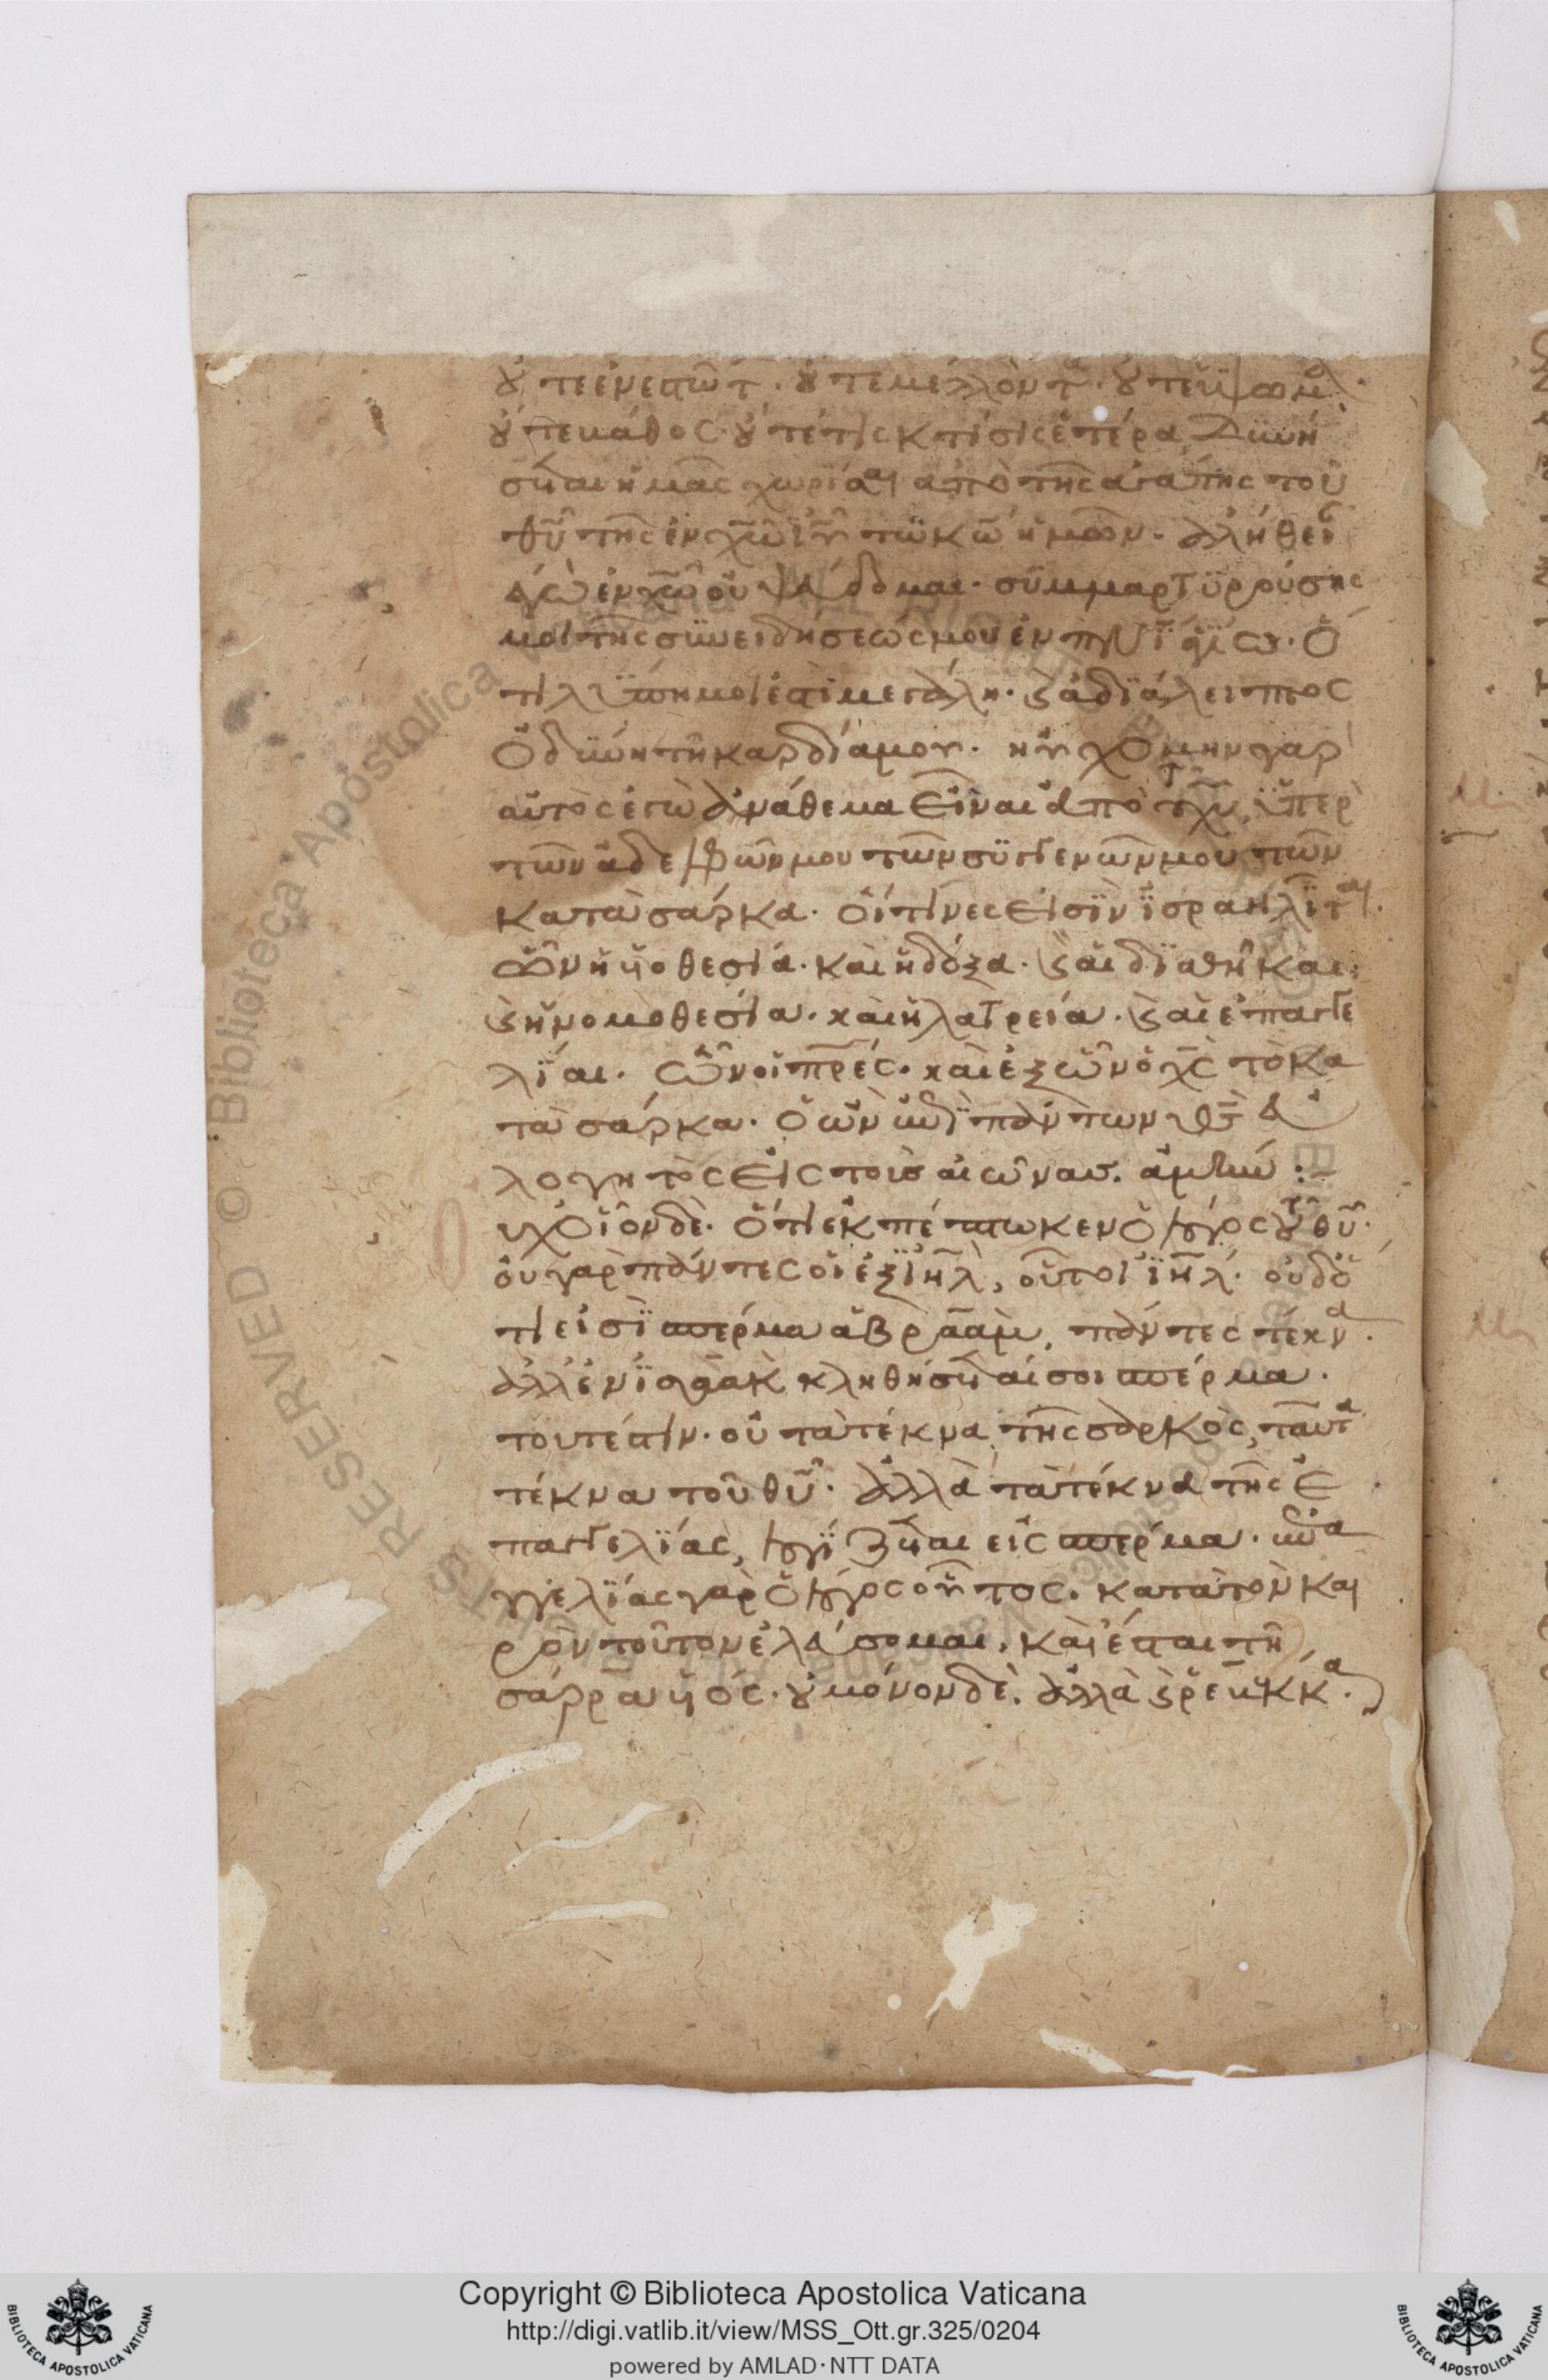 οὔτε ἐνεστῶτ. οὔτε μέλλοντ. οὔτε ὕψωμ.
οὔτε βάθος. οὔτέ τις κτίσις ἑτέρα δυνή
σεται ἡμᾶς χωρίσαι ἀπὸ τῆς ἀγάπης τοῦ
θῦ τῆς ἐν χῶ ἰῦ τῶ κῶ ἡμῶν. ἀλήθει
λέγω ἐν χῶ οὐ ψεύδομαι. συμμαρτυρούσης
μοι τῆς συνειδήσεώς μου ἐν πνῒ ἁγίω. ὅ
τι λύπη μοι ἐστὶ μεγάλη. καὶ ἀδιάλειπτος
ὀδύνη τῆ καρδία μου. ηὐχόμην γὰρ
αὐτὸς ἐγὼ ἀνάθεμα εἶναι ἀπὸ τοῦ χῦ ὑπὲρ
τῶν ἀδελφῶν μου τῶν συγγενῶν μου τῶν
κατὰ σάρκα. οἵτινές εἰσιν ἰσραηλῖται.
ὧν ἡ υἱοθεσία. καὶ ἡ δόξα. καὶ αἱ διαθῆκαι
καὶ ἡ νομοθεσία. καὶ ἡ λατρεία. καὶ αἱ ἐπαγγε
λίαι. ὧν οἱ πρές. καὶ ἐξ ὧν ὁ χς τὸ κα
τὰ σάρκα. ὁ ὢν ἐπὶ πάντων θς εὐ
λογητὸς εἰς τοὺς αἰῶνας. ἀμήν :–
υχ οἷον δὲ. ὅτι ἐκπέπτωκεν ὁ λόγος τοῦ θῦ.
οὐ γὰρ πάντες οἱ ἐξ ἰηλ, οὗτοι ἰηλ. οὐδ ὅ
τι εἰσὶ σπέρμα ἀβραὰμ, πάντες τέκνα.
ἀλλ ἐν ἰσαὰκ κληθήσεταί σοι σπέρμα.
τουτέστιν. οὐ τὰ τέκνα τῆς σαρκὸς, ταῦτα
τέκνα τοῦ θῦ. ἀλλὰ τὰ τέκνα τῆς ἐ
παγγελίας, λογίζεται εἰς σπέρμα. ἐπα
γγελίας γὰρ ὁ λόγος οὗτος. κατὰ τὸν και
ρὸν τοῦτον ἐλεύσομαι, καὶ ἔσται τῆ
σάρρα υἱός. οὐ μόνον δὲ. ἀλλὰ καὶ ῥεβέκκα.
Copyright © Biblioteca Apostolica Vaticana
http://digi.vatlib.it/view/MSS_Ott.gr.325/0204
powered by AMLAD·NTT DATA